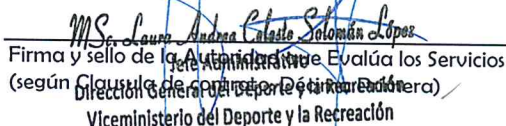 MSc. Laura Andrea Celeste Solomán López
Firma y sello de la Autoridad que Evalúa los Servicios
Jefe Administrativo
(según Clausula de contrato: Décima Primera)
Dirección General del Deporte y la Recreación
Viceministerio del Deporte y la Recreación